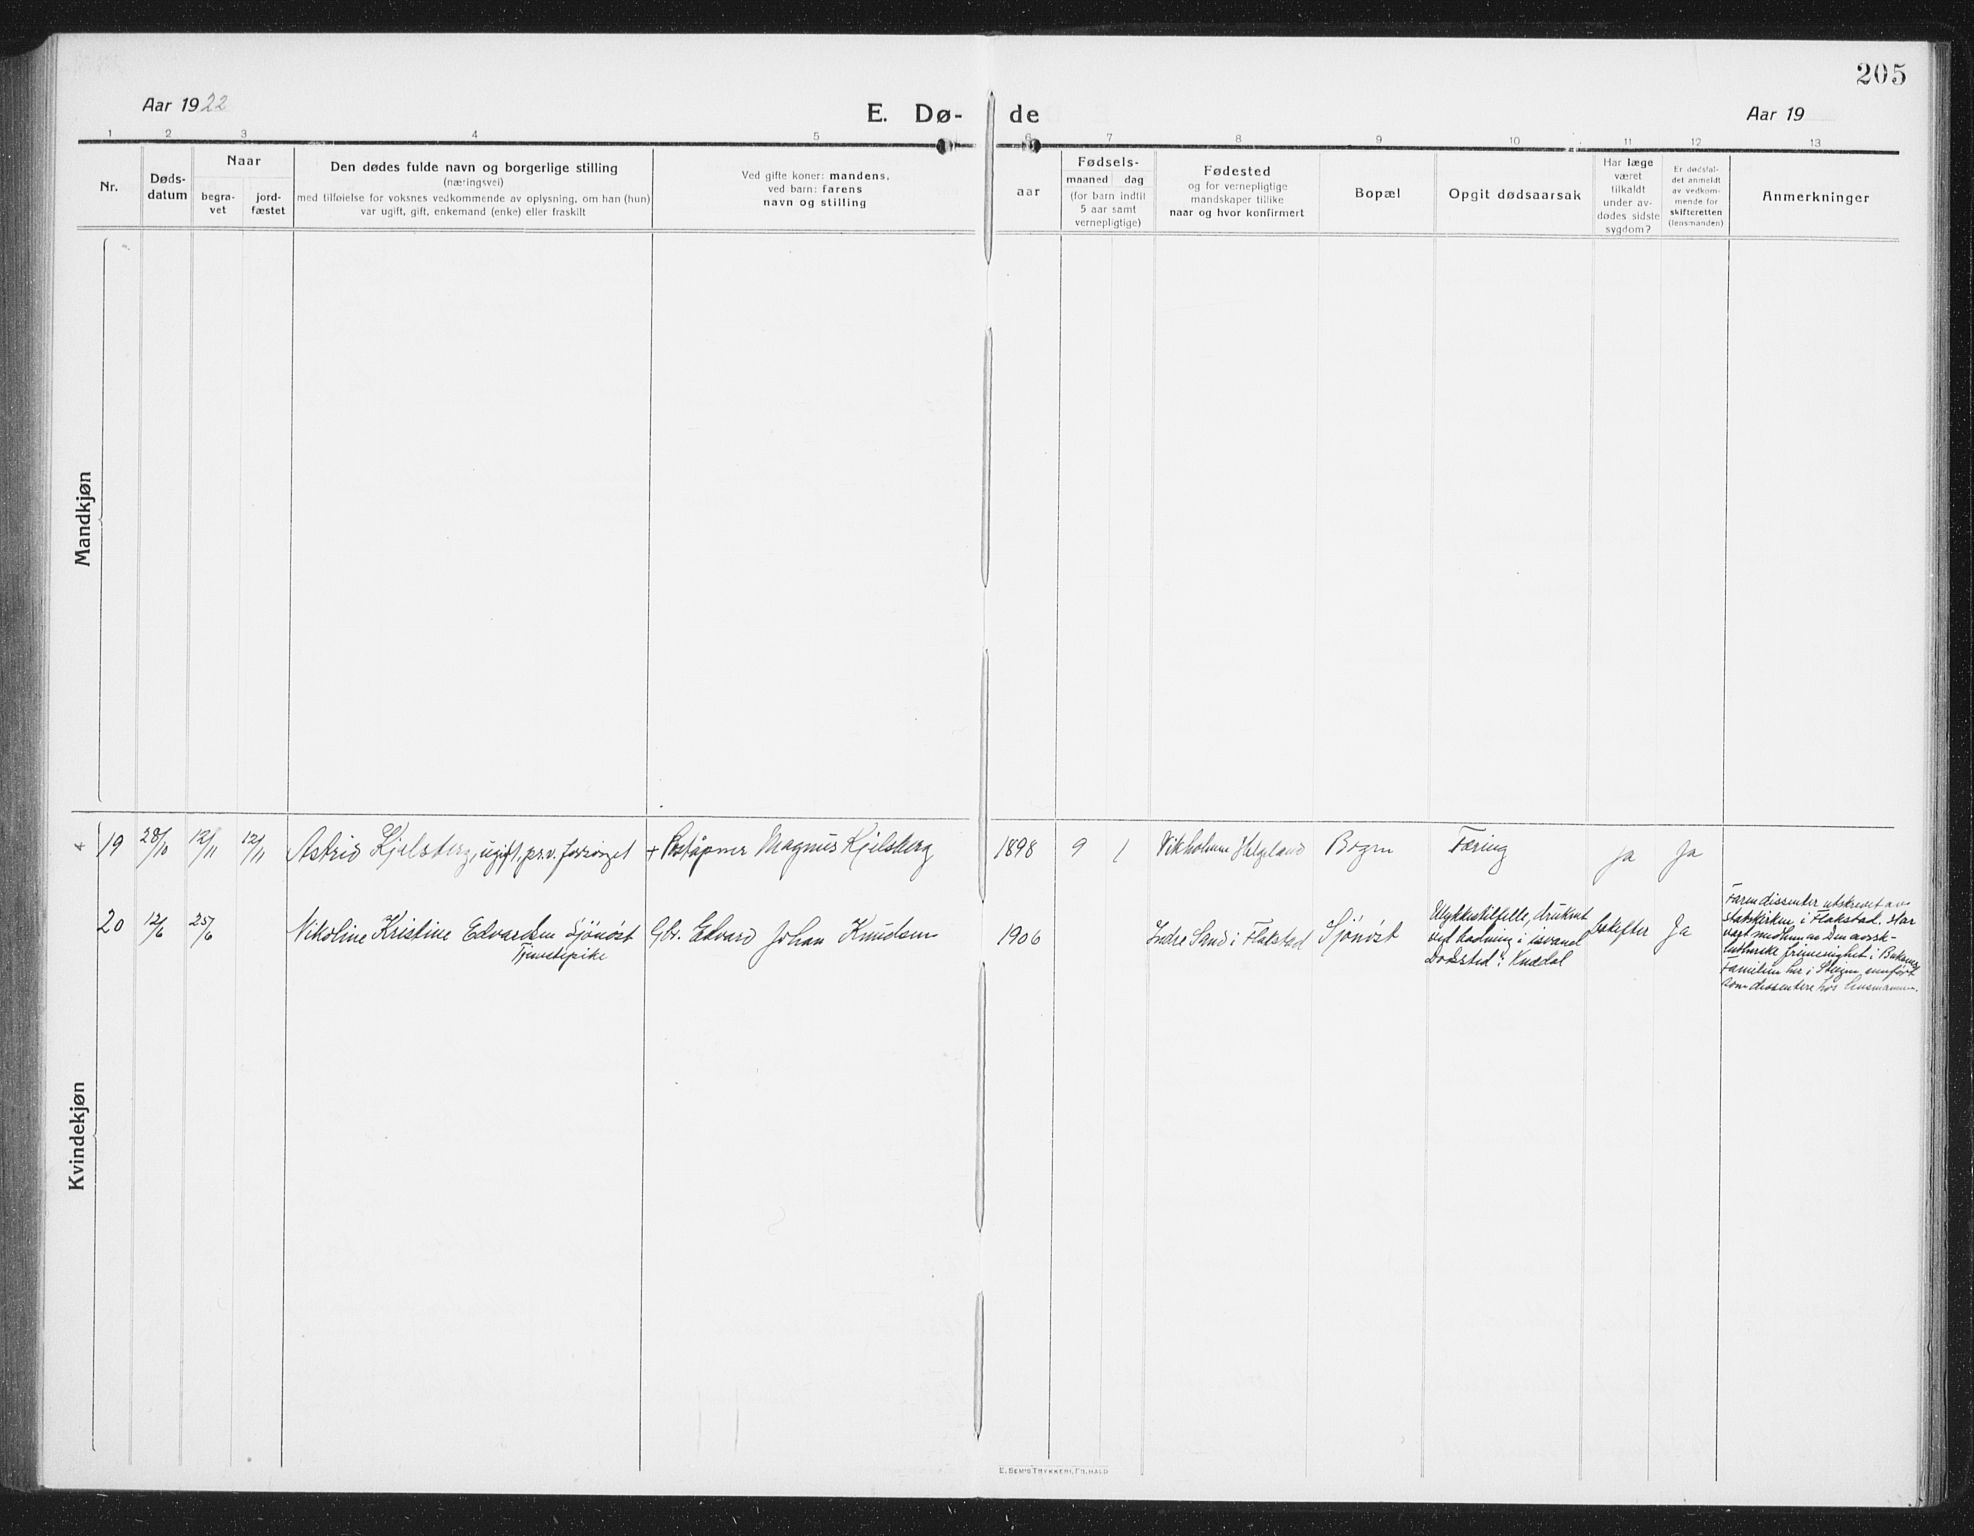 205
Aar 1922
E. Dø- de
Aar 19
1 2 3 4 5 6 7 8 9 10 11 12 13
Nr.
Døds-
datum
Naar
begra-
vet
jord-
fæstet
Den dødes fulde navn og borgerlige stilling
(næringsvei)
med tilføielse for voksnes vedkommende av oplysning, om han (hun)
var ugift, gift, enkemand (enke) eller fraskilt
Ved gifte koner: mandens,
ved barn: farens
navn og stilling
aar
Fødsels-
maaned dag
(for barn indtil
5 aar samt
vernepligtige)
Fødested
og for vernepligtige
mandskaper tillike
naar og hvor konfirmert
Bopæl
Opgit dødsaarsak
Har læge
været
tilkaldt
under av-
dødes sidste
sygdom?
Er dødsfal-
det anmeldt
av vedkom-
mende for
skifteretten
(lensmanden)
Anmerkninger
Mandkjøn
19 28/10 12/11 12/11 Astrid Kjelsberg, ugift, pr.v. forsörget + Poståpner Magnus Kjelsberg 1898 9 1 Vikholmen Helgeland Bogen Tæring ja Ja
20 12/6 25/6 Nikoline Kristine Edvardsen Sjönöst Gbr. Edvard Johan Knudsen 1906 Indre Sand i Flakstad Sjönöst
Tjenestepike
Ulykkestilfelle, druknet
ved badning i isvand
Dødssted: Knædal
Ja
Faren dissenter utskrevet av
statskirken i Flakstad. Har
vært medlem av Den norsk-
lutherske frimenighet i
Familien her i Steigen innført
som dissentere hos lensmannen.
Kvindekjøn
E. SEM'S TRYKKERI, FR.HALD